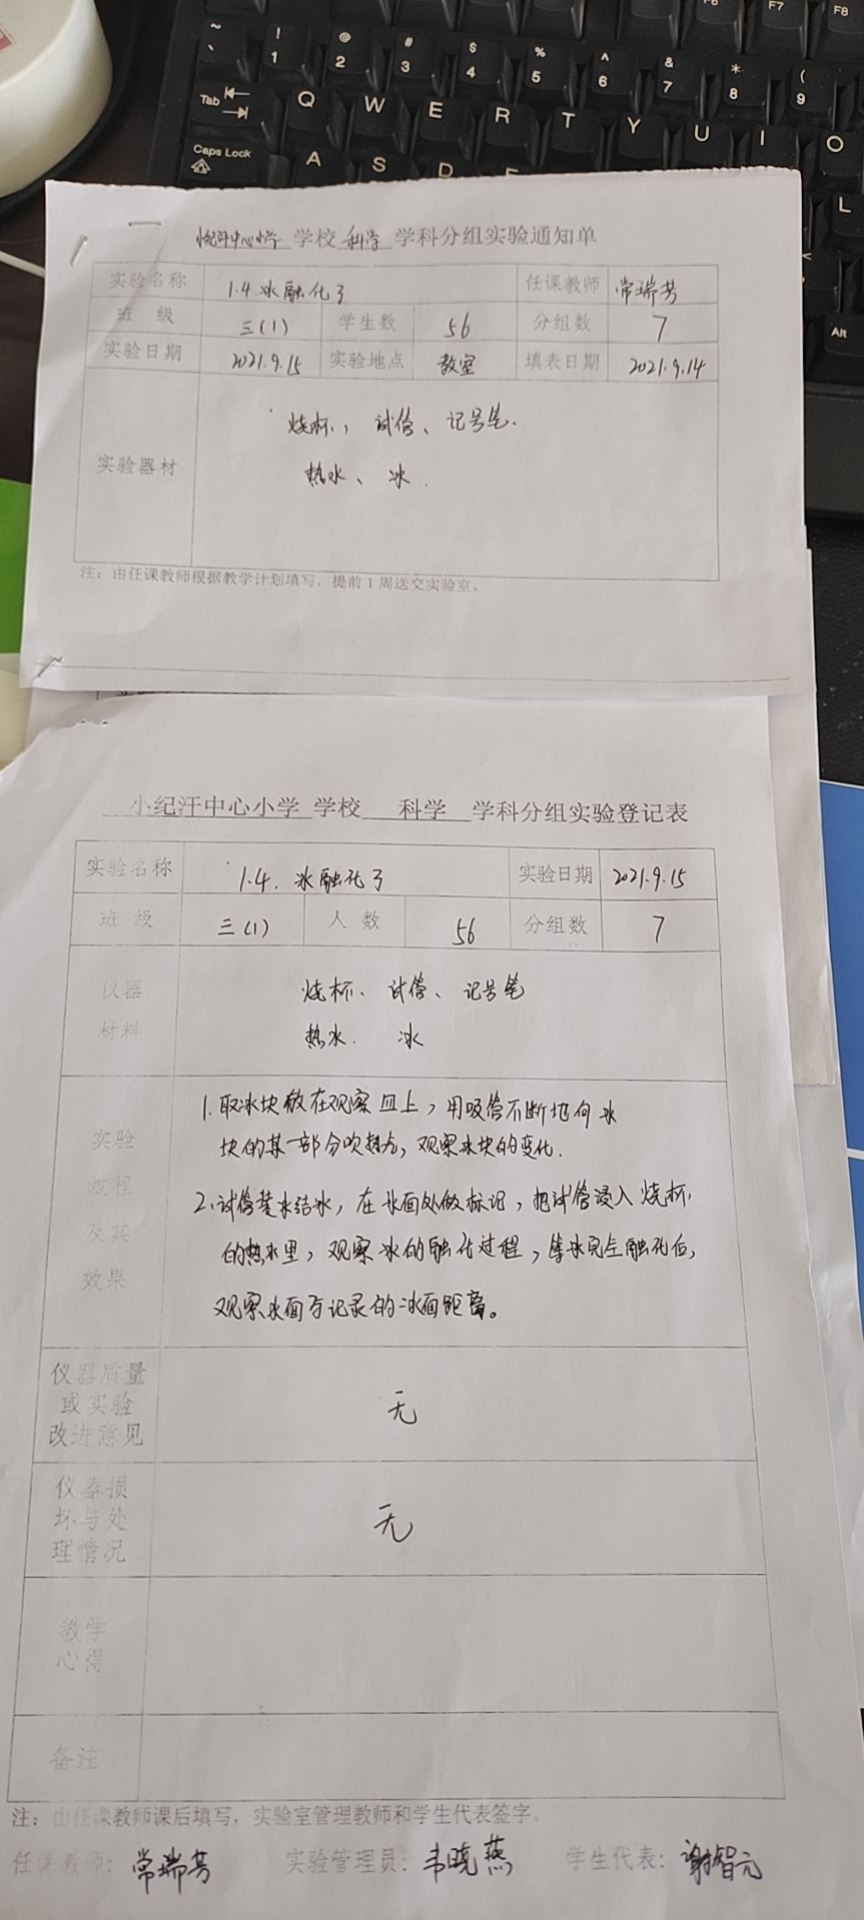 F7
F8
~
!
1
@
2
#
3
$
4
%
5
^
6
&
7
*
8
(
9
Tab
Q
W
E
R
T
Y
U
I
O
Caps Lock
A
S
D
L
Alt
小纪汗中心小学 学校 科学 学科分组实验通知单
实验名称 1.4.冰融化了 任课教师 常瑞芳
班 级 三(1) 学生数 56 分组数 7
实验日期 2021.9.15 实验地点 教室 填表日期 2021.9.14
实验器材
烧杯、试管、记号笔.
热水、冰.
注：由任课教师根据教学计划填写，提前1周送交实验室。
小纪汗中心小学 学校 科学 学科分组实验登记表
实验名称 1.4.冰融化了 实验日期 2021.9.15
班 级 三(1) 人 数 56 分组数 7
仪器
材料
烧杯、试管、记号笔
热水. 冰
实验
过程
及其
效果
1.取冰块放在观察皿上，用吸管不断地向冰
块的某一部分吹热气，观察冰块的变化.
2.试管装水结冰，在冰面处做标记，把试管浸入烧杯
的热水里，观察冰的融化过程，等冰完全融化后，
观察水面与记录的冰面距离。
仪器质量
或实验
改进意见
无
仪器损
坏与处
理情况
无
教学
心得
备注
注：由任课教师课后填写，实验室管理教师和学生代表签字。
任课教师：常瑞芳 实验管理员：韦晓燕 学生代表：谢智元